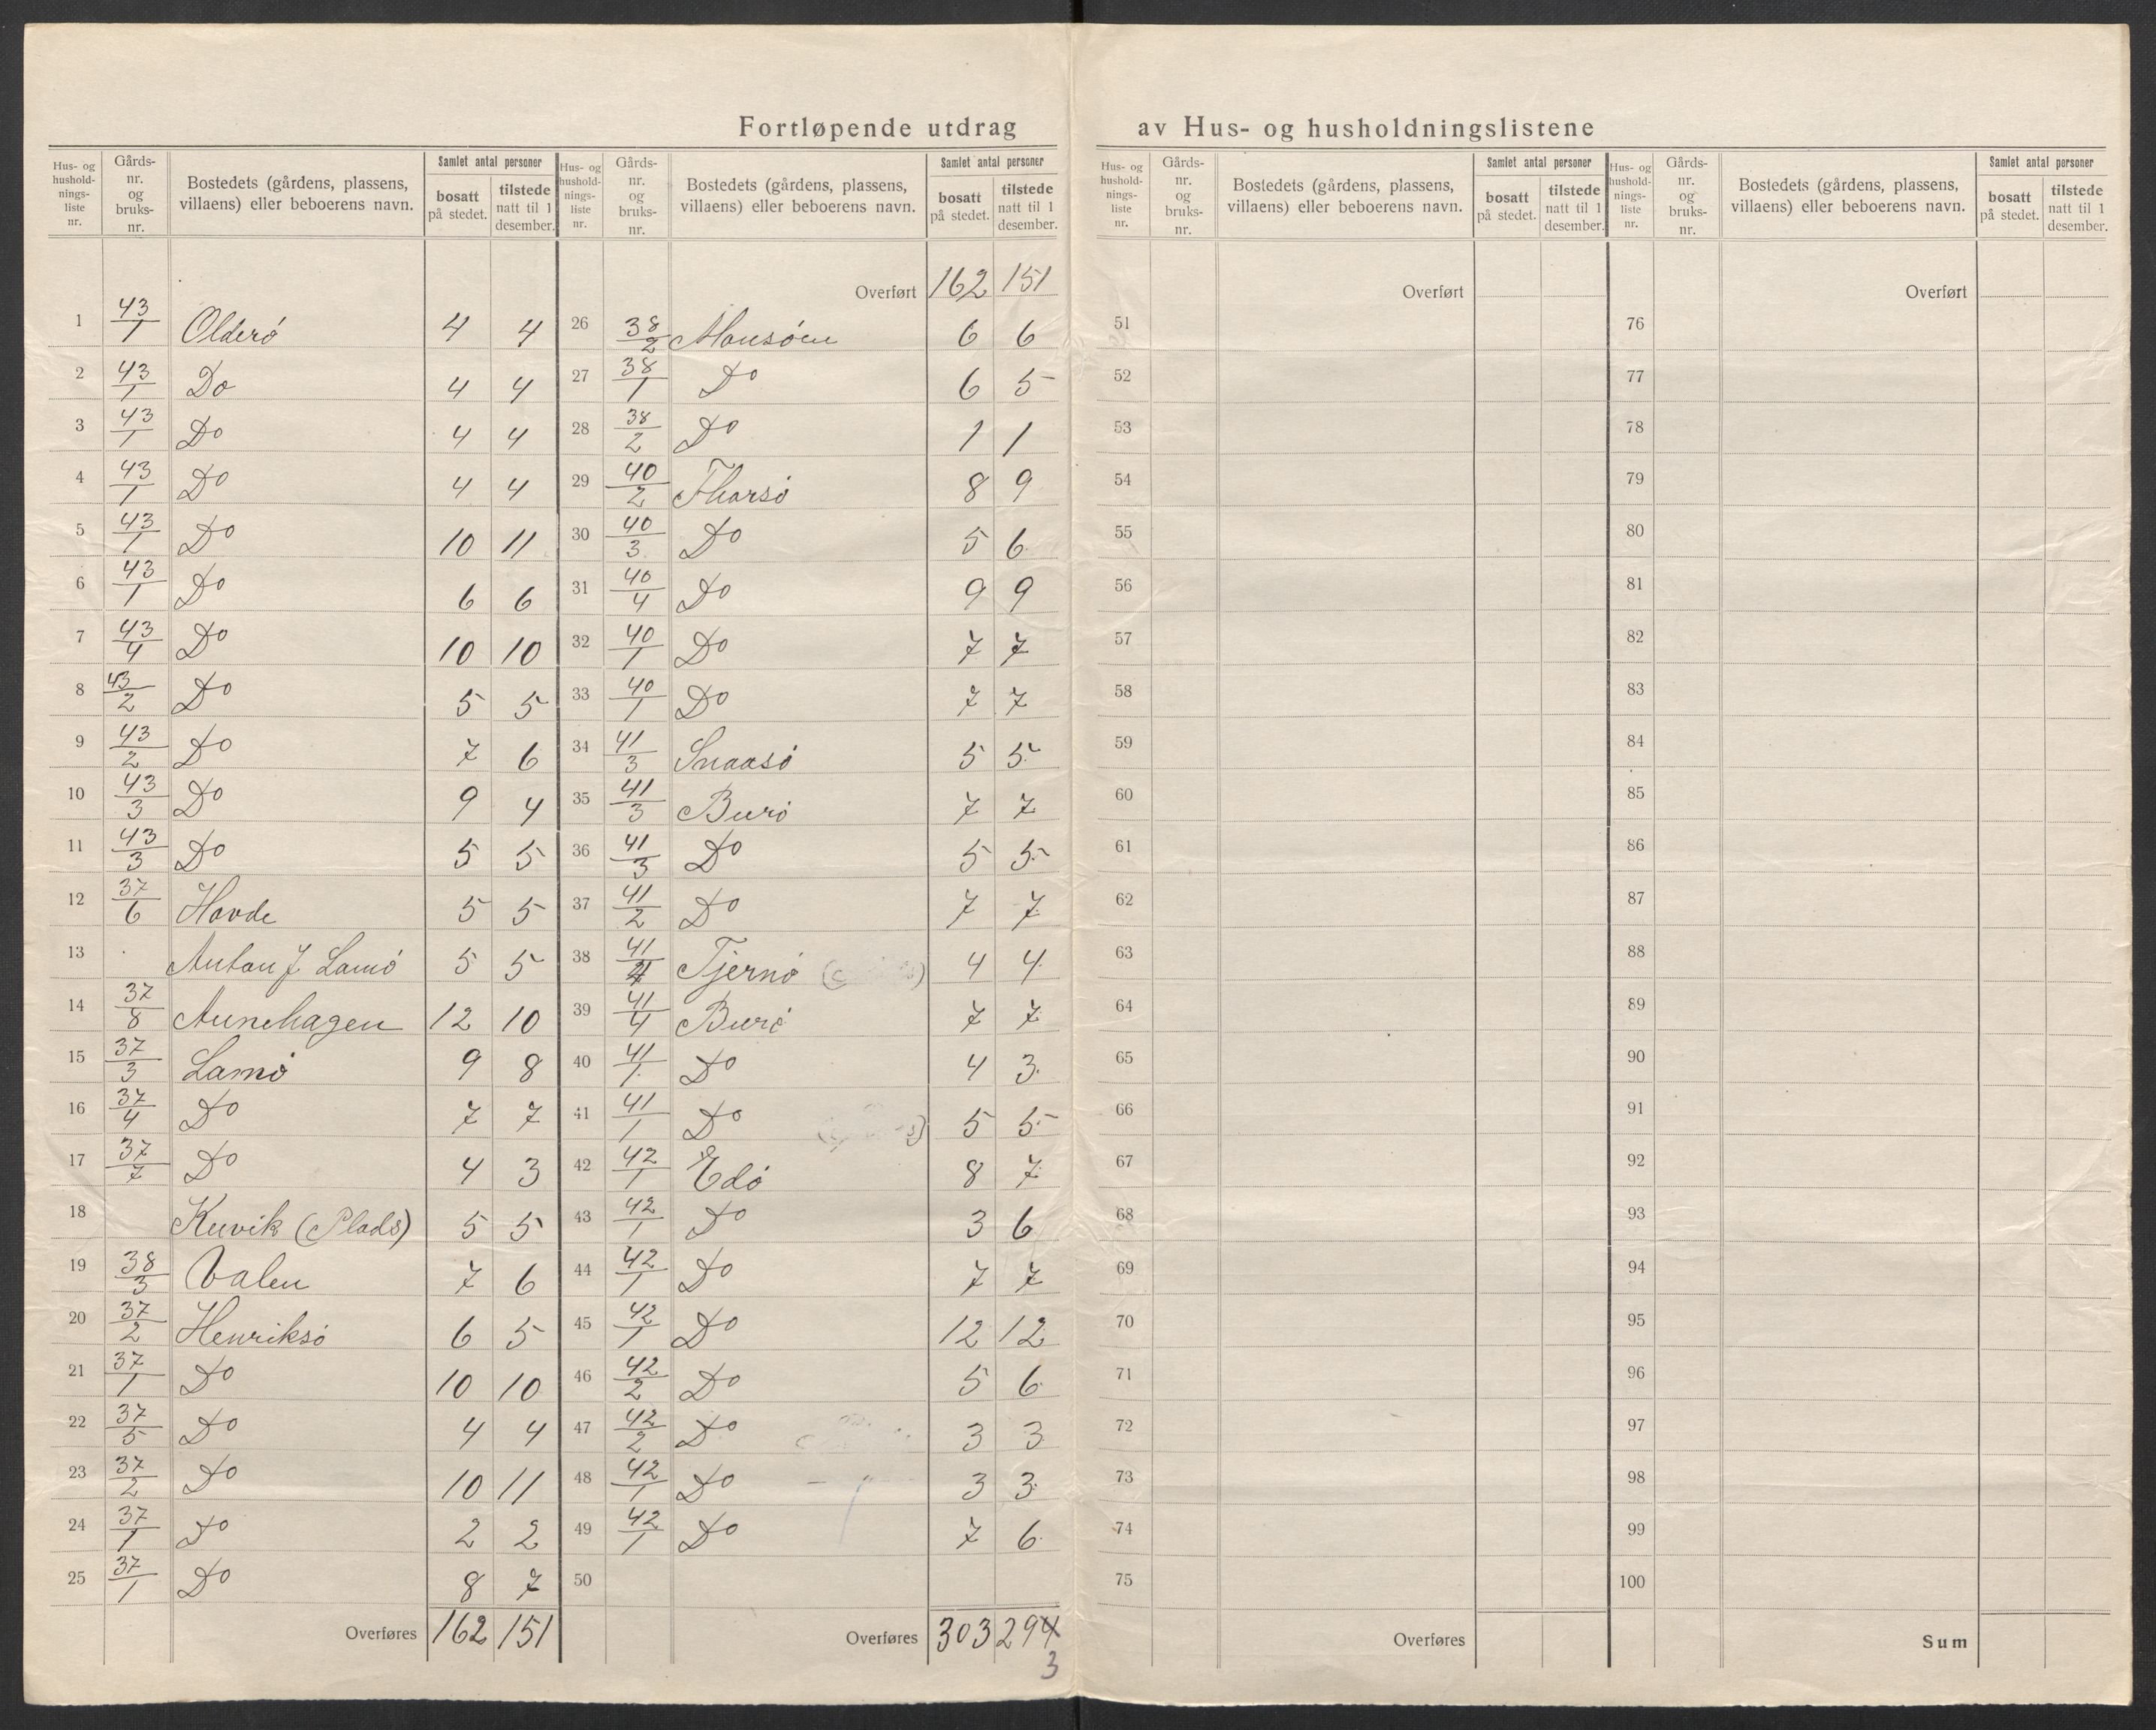 Fortløpende utdrag av Hus- og husholdningslistene
Hus- og husholdningsliste nr. | Gårdsnr. og bruksnr. | Bostedets (gårdens, plassens, villaens) eller beboerens navn. | Samlet antal personer | bosatt på stedet. | tilstede natt til 1 desember.
1 43/1 Olderø 4 4
2 43/1 Do 4 4
3 43/1 Do 4 4
4 43/1 Do 4 4
5 43/1 Do 10 11
6 43/1 Do 6 6
7 43/4 Do 10 10
8 43/2 Do 5 5
9 43/2 Do 7 6
10 43/3 Do 9 4
11 43/3 Do 5 5
12 37/6 Havde 5 5
13 Anton J Lamø 5 5
14 37/8 Aunehagen 12 10
15 37/3 Lamø 9 8
16 37/4 Do 7 7
17 37/7 Do 4 3
18 Kuvik (Plads) 5 5
19 38/3 Valen 7 6
20 37/2 Henriksø 6 5
21 37/1 Do 10 10
22 37/5 Do 4 4
23 37/2 Do 10 11
24 37/1 Do 2 2
25 37/1 Do 8 7
Overføres 162 151
Hus- og husholdningsliste nr. | Gårdsnr. og bruksnr. | Bostedets (gårdens, plassens, villaens) eller beboerens navn. | Samlet antal personer | bosatt på stedet. | tilstede natt til 1 desember.
Overført 162 151
26 38/2 Mausøen 6 6
27 38/1 Do 6 5
28 38/2 Do 1 1
29 40/2 Tharsø 8 9
30 40/3 Do 5 6
31 40/4 Do 9 9
32 40/1 Do 7 7
33 40/1 Do 7 7
34 41/3 Snaasø 5 5
35 41/3 Burø 7 7
36 41/3 Do 5 5
37 41/2 Do 7 7
38 41/4 Tjernø 4 4
39 41/4 Burø 7 7
40 41/1 Do 4 3
41 41/1 Do 5 5
42 42/1 Edø 8 7
43 42/1 Do 3 6
44 42/1 Do 7 7
45 42/1 Do 12 12
46 42/2 Do 5 6
47 42/2 Do 3 3
48 42/1 Do 3 3
49 42/1 Do 7 6
50
Overføres 303 294
3
Hus- og husholdningsliste nr. | Gårdsnr. og bruksnr. | Bostedets (gårdens, plassens, villaens) eller beboerens navn. | Samlet antal personer | bosatt på stedet. | tilstede natt til 1 desember.
Overført
51
52
53
54
55
56
57
58
59
60
61
62
63
64
65
66
67
68
69
70
71
72
73
74
75
Overføres
Hus- og husholdningsliste nr. | Gårdsnr. og bruksnr. | Bostedets (gårdens, plassens, villaens) eller beboerens navn. | Samlet antal personer | bosatt på stedet. | tilstede natt til 1 desember.
Overført
76
77
78
79
80
81
82
83
84
85
86
87
88
89
90
91
92
93
94
95
96
97
98
99
100
Sum